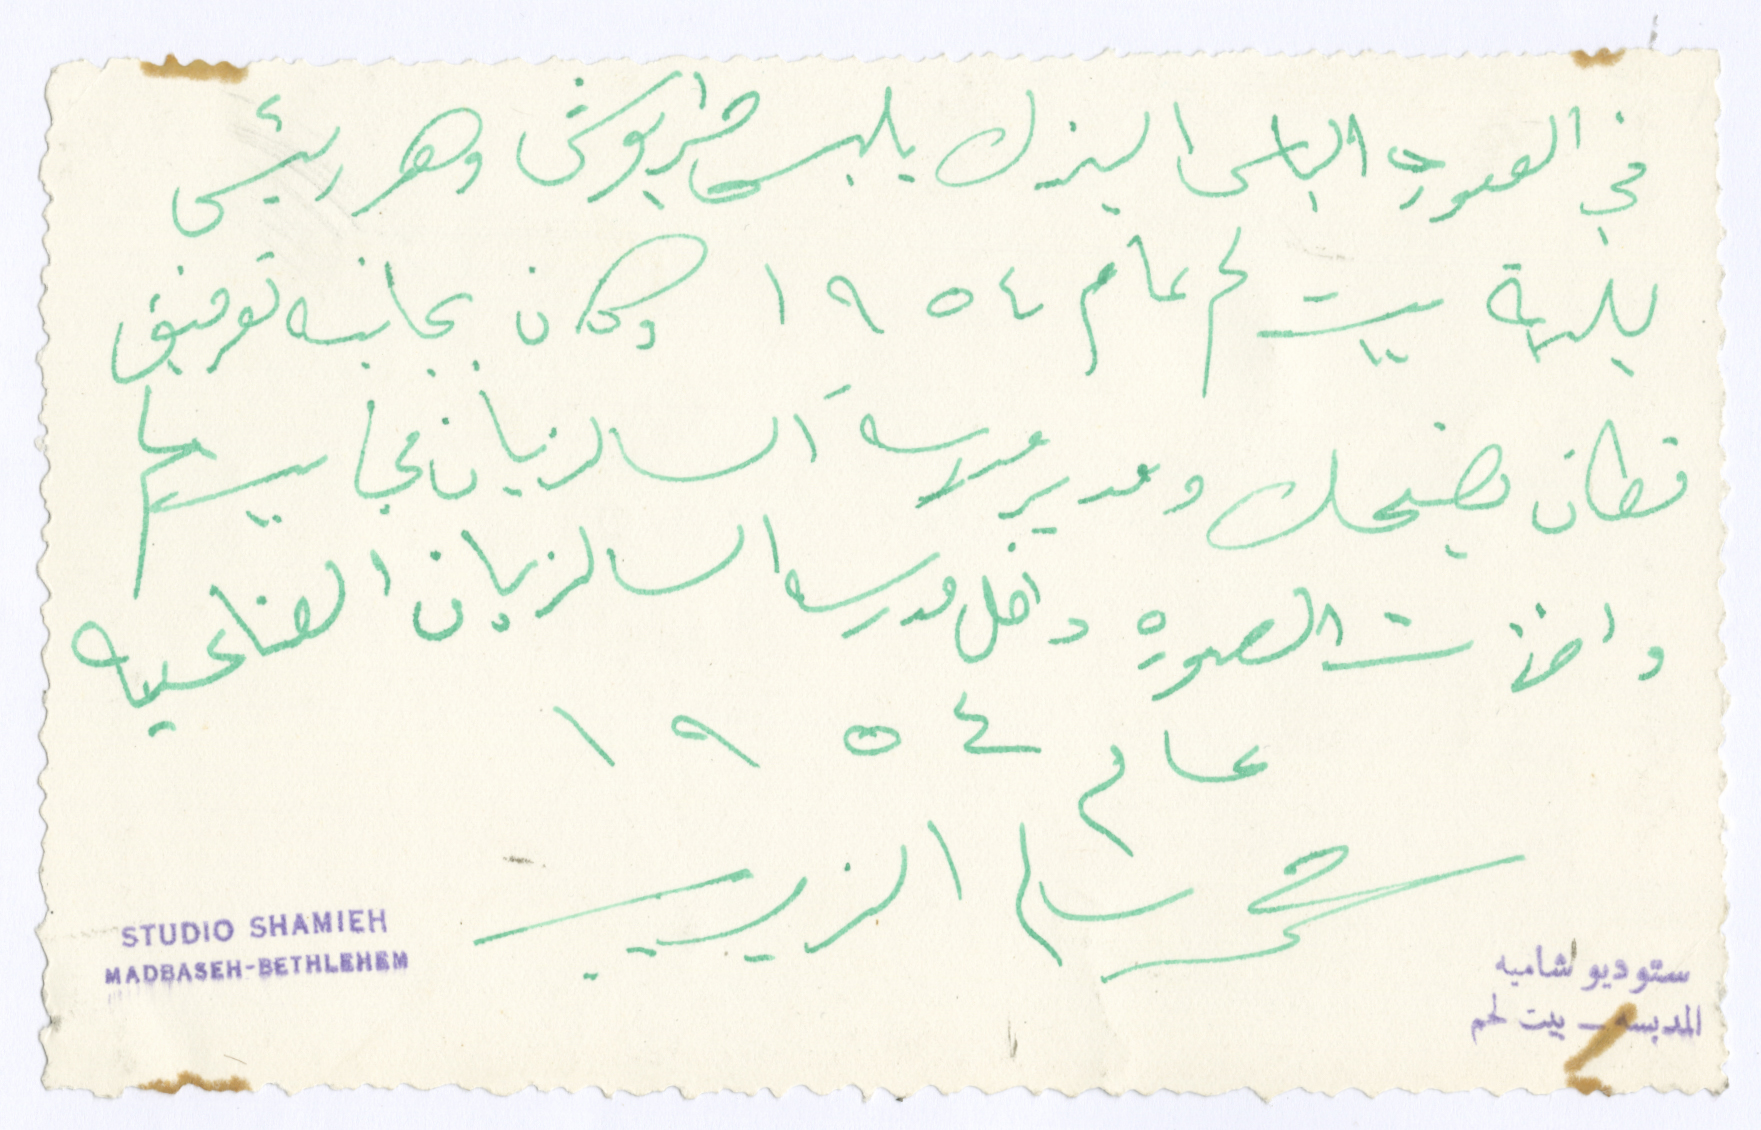 في الصوره الياس البندك يلبس طربوش وهو رئيس
بلدية بيت لحم عام ١٩٥٤ وكان بجانبه توفيق
قطان يضحك ومدير مدرسه السالزيان في بيت لحم
واخذت الصوره داخل مدرسه السالزيان الصناعيه
عام ١٩٥٤
سالم الزير
STUDIO SHAMIEH
MADBASEH-BETHLEHEM
ستوديو شاميه
المدبسه - بيت لحم